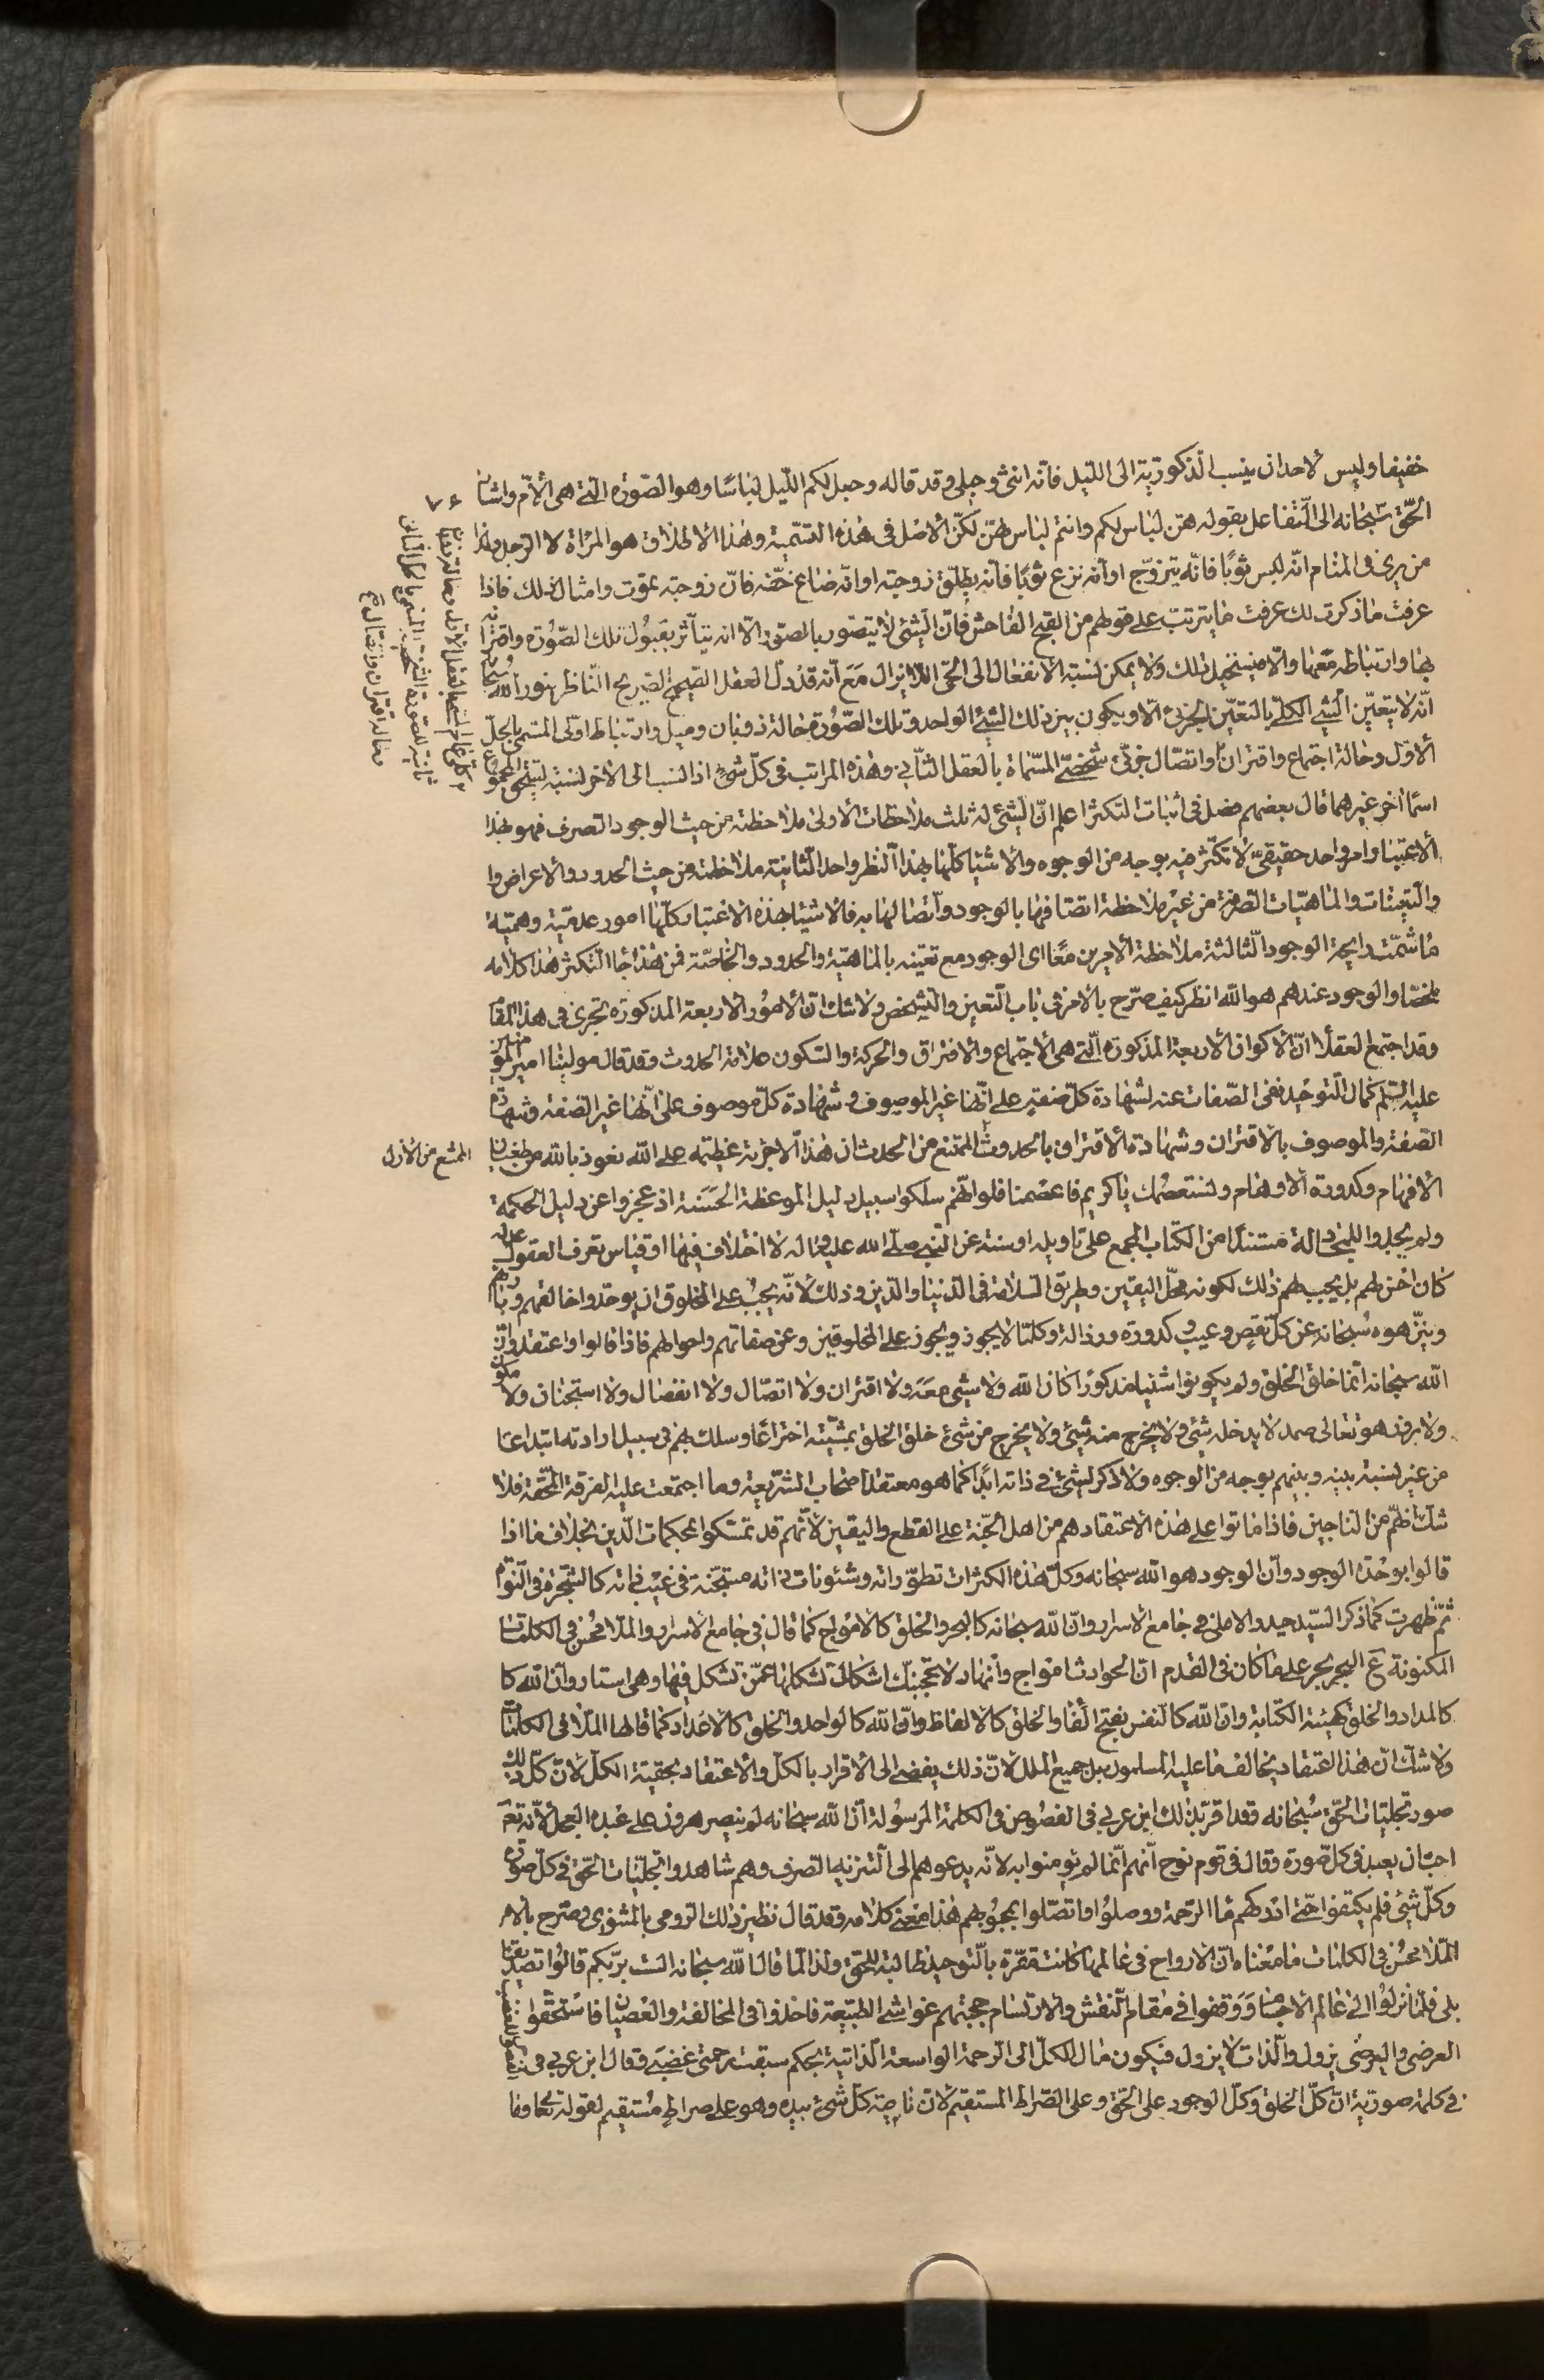 خفيفا وليس لاحد ان ينسب الذكورية الى الليل فانه انثى وجلى وقد قاله وجعل لكم الليل لباسًا وهو الصّورة الّتى هى الأمّ واشار
الحقّ سبحانه الى التّفاعل بقوله هنّ لباس لكم وانتم لباس لهنّ لكنّ الأصل فى هذه التسمية وهذا الاطلاق هو المرأة لا الرجل ولذا
من يرى فى المنام انّه لبس ثوبًا فانّه يتزوّج او انّه نزع ثوبًا فانّه يطلّق زوجته او انّه ضاع خفّه فانّ زوجته تموت وامثال ذلك فاذا
عرفت ما ذكرت لك عرفت ما يترتب على قولهم من القبح الفاحش فانّ الشئ لا يتصور بالصّورة الّا انه يتأثر بقبول تلك الصّورة واقترانه
بها وارتباطه معها والّا فيستحيل ذلك ولا يمكن نسبة الانفعال الى الحىّ الذى لا يزال مع انّه قد دلّ العقل الصّحيح الصّريح النّاظر بنور الله سبحانه
انّه لا يتعيّن الشئ الكلّى بالتعيّن الجزئى الّا ويكون بين ذلك الشئ الواحد وتلك الصّورة حالة ذوبان وميل وارتباط اوّلى المسمّى بالحلّ
الأوّل وحالة اجتماع واقتران واتّصال جزئى شخصى المسمّاة بالعقل الثّانى وهذه المراتب فى كلّ شئ اذا نسب الى الاخر نسبة
اسما اخر غيرهما قال بعضهم فصل فى اثبات التكثر اعلم انّ الشئ له ثلث ملاحظات الأولى ملاحظته من حيث الوجود الصرف فهو بهذا
الأعتبار امر واحد حقيقىّ لا تكثّر فيه بوجه من الوجوه والأشياء كلّها بهذا النظر واحد الثانية ملاحظته من حيث الحدود والأعراض وا
والتعينات والماهيّات الصرفة من غير ملاحظة اتصافها بالوجود واتصالها به فالاشياء بهذه الاعتبار كلّها امور عدميّة وهميّة
ما شمّت رايحة الوجود الثّالثة ملاحظة الأمرين معًا اى الوجود مع تعيّنه بالماهيّة والحدود والخاصّة فمن هذا جاء التكثر هذا كلامه
ملخصا والوجود عندهم هو الله انظر كيف صرّح بالامر فى باب التّعين والتشخص ولا شك انّ الأمور الأربعة المذكورة تجرى فى هذا المقام
وقد اجتمع العقلاء انّ الأكوان الأربعة المذكورة الّتى هى الأجتماع والافتراق والحركة والسّكون علامة الحدوث وقد قال مولينا امير المؤمنين
عليه السّلم كمال التّوحيد نفى الصّفات عنه لشهادة كلّ صفة على انّها غير الموصوف وشهادة كلّ موصوف على انّها غير الصّفة وشهادة
الصّفة والموصوف بالأقتران وشهادة الأقتران بالحدوث الممتنع من الحدث ان هذا الّا جرئة عظيمة على الله نعوذ بالله من طغيان
الافهام وكدورة الأوهام ونستعصمك يا كريم فاعصمنا فلو انّهم سلكوا سبيل دليل الموعظة الحسنة اذ عجزوا عن دليل الحكمة
ولم يجدوا للمجادلة مستندًا من الكتاب المجمع على تاويله او سنة عن النّبى صلّى الله عليه واله لا اختلاف فيها او قياس تعرف العقول عدله
كان احسن لهم بل يجب لهم ذلك لكونه محلّ اليقين وطريق السّلامة فى الدّنيا والدّين وذلك لأنّه يجب على المخلوق ان يوحّدوا خالقهم وربّهم
وينزّهوه سبحانه عن كلّ نقص وعيب وكدورة ورذالة وكلّما لا يجوز ويجوز على المخلوقين وعن صفاتهم واحوالهم فاذا قالوا واعتقدوا انّ
الله سبحانه انّما خلق الخلق ولم يكونوا شيئا مذكورًا كان الله ولا شئ معه ولا اقتران ولا اتصّال ولا انفصال ولا استجنان ولا
ولا بروز هو تعالى صمد لا يدخله شئ ولا يخرج منه شئ ولا يخرج من شئ خلق الخلق بمشيّته اختراعًا وسلك بهم فى سبيل ارادته ابتداعًا
من غير نسبة بينه وبينهم بوجه من الوجوه ولا ذكر لشئ فى ذاته ابدًا كما هو معتقد اصحاب الشّريعة وما اجتمعت عليه الفرقة المحقّة فلا
شك انّهم من النّاجين فاذا ماتوا على هذه الأعتقاد هم من اهل الجّنة على القطع واليقين لأنّهم قد تمسّكوا بمحكمات الّدين بخلاف ما اذا
قالوا بوحدة الوجود وانّ الوجود هو الله سبحانه وكلّ هذه الكثرات تطوّراته وشئونات ذاته مستجنّة فى غيب ذاته كالشّجرة فى النّواة
ثمّ ظهرت كما ذكر السّيد حيدر الاملى فى جامع الاسرار وانّ الله سبحانه كالبحر والخلق كالأمواج كما قال فى جامع الأسرار والملّا محسن فى الكلمات
المكنونة ع البحر بحر على ما كان فى القدم انّ الحوادث امواج وانهار لا يحجبنّك اشكال تشكلها عمّن تشكل فيها وهى استار وانّ الله كا
كالمداد والخلق كهيئة الكتابة وانّ الله كالنفس بفتح الفاء والخلق كالالفاظ وانّ الله كالواحد والخلق كالأعداد كما قالها الملّا فى الكلمات
ولا شك انّ هذا اعتقاد يخالف ما عليه المسلمون بل جميع الملل لانّ ذلك يفضى الى الأقرار بالكلّ والأعتقاد بحقيّة الكلّ لانّ كلّ ذلك
صور تجليّات الحقّ سبحانه وقد اقرّ بذلك ابن عربى فى الفصوص فى الكلمة المرسولة انّ الله سبحانه لم ينصر هرون على عبدة العجل لأنّه تعالى
احبّ ان يعبد فى كلّ صورة وقال فى قوم نوح انّهم انّما لم يؤمنوا به لانّه يدعوهم الى التّنزيه الصرف وهم شاهدوا تجليّات الحّق فى كلّ صورة
وكلّ شئ فلم يكتفوا حتّى ادركهم ماء الرّحمة ووصلوا واتصّلوا بمحبوبهم هذا معنى كلامه وقد قال نظير ذلك الرّومى بالمثنوى وصّرح بالامر
الملّا محسن فى الكلمات ما معناه انّ الارواح فى عالمها كانت مقّرة بالتّوحيد طالبة للحّق ولذا لّما قال الله سبحانه الست بربّكم قالوا تصديقا
بلى فلمّا نزلوا الى عالم الأجسام ووقفوا فى مقام النّفس والارتسام حجبتهم غواشى الطبيعة فاخذوا فى المخالفة والعصيان فاستحّقوا
العرضى والعرضى يزول والّذات لا يزول فيكون مال الكلّ الى الرحمة الواسعة الذّاتية بحكم سبقت رحمتى غضبى وقال ابن عربى فى
فى كلمة صورية انّ كلّ الخلق وكلّ الوجود على الحقّ وعلى الصّراط المستقيم لانّ ناصية كلّ شئ بيده وهو على صراط مستقيم لقوله تعالى وما
الممتنع من الازل
وحالة اقتران واتّصال صح